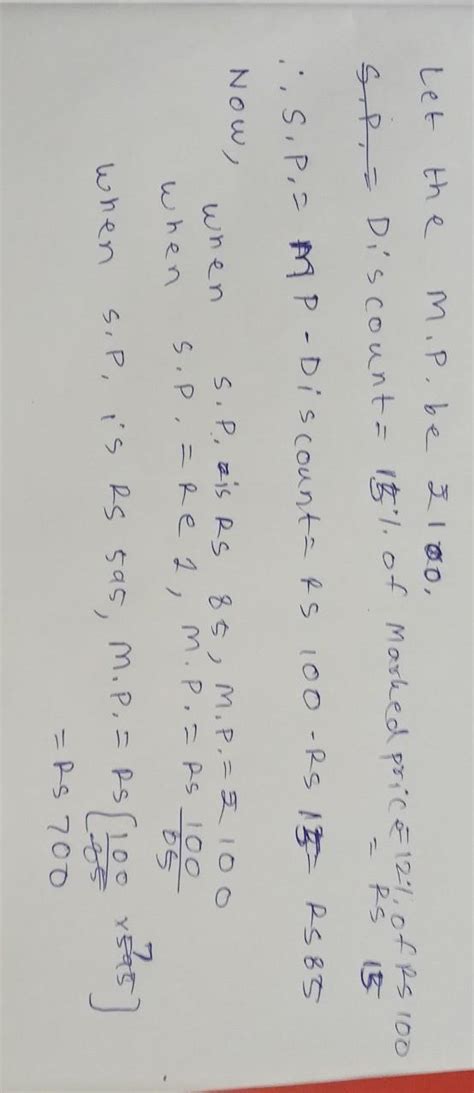 Let the M.P. be ₹ 100.
S.P. = Discount = 15% of Marked price = 12% of Rs 100
= Rs 15
∴ S.P. = MP - Discount = Rs 100 - Rs 15 = Rs 85
Now,
when S.P. is Rs 85, M.P. = ₹ 100
when S.P. = Re 1, M.P. = Rs 100/85
when S.P. is Rs 595, M.P. = Rs [100/85 × 595] 7
= Rs 700